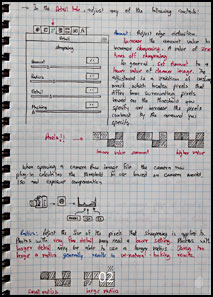 → In the Detail tab, adjust any of the following controls:
Detail
Sharpening
Amount
Radius
Detail
Masking
Amount: Adjusts edge definition.
Increase the amount value to
increase sharpening. A value of zero
turns off sharpening.
In general, set Amount to a
lower value for cleaner image. The
adjustment is a variation of
mask, which locates pixels that
differ from surrounding pixels
based on the threshold you
specify and increases the pixels
contrast by the amount you
specify.
Pixels!!
lower value amount
higher value
When opening a camera raw image file the camera raw
plug-in calculates the threshold to use based on camera model,
ISO and exposure compensation.
ISO
Radius: Adjust the size of the pixels that sharpening is applied to
Photos with very fine detail may need a lower setting. Photos with
larger detail may be able to use a larger radius. Using too
large a radius generally results in un-natural looking results.
02
Small radius
large radius